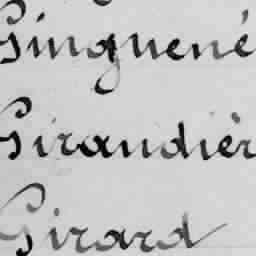 Ginguené
Girandièr
Girard